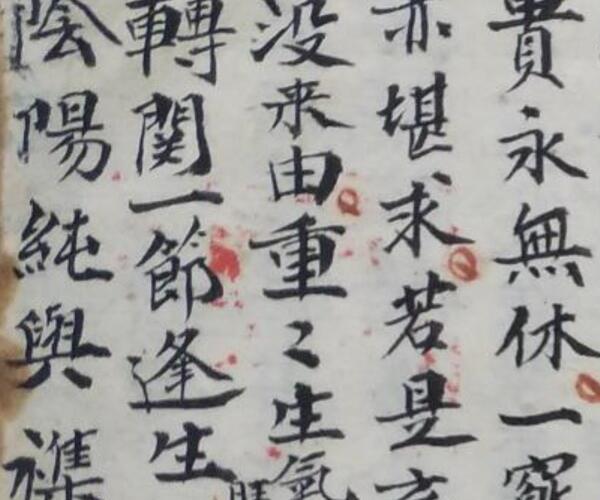 貴永無休一
亦堪求若是
没来由重〻生氣
轉関一節逢生
陰陽純與